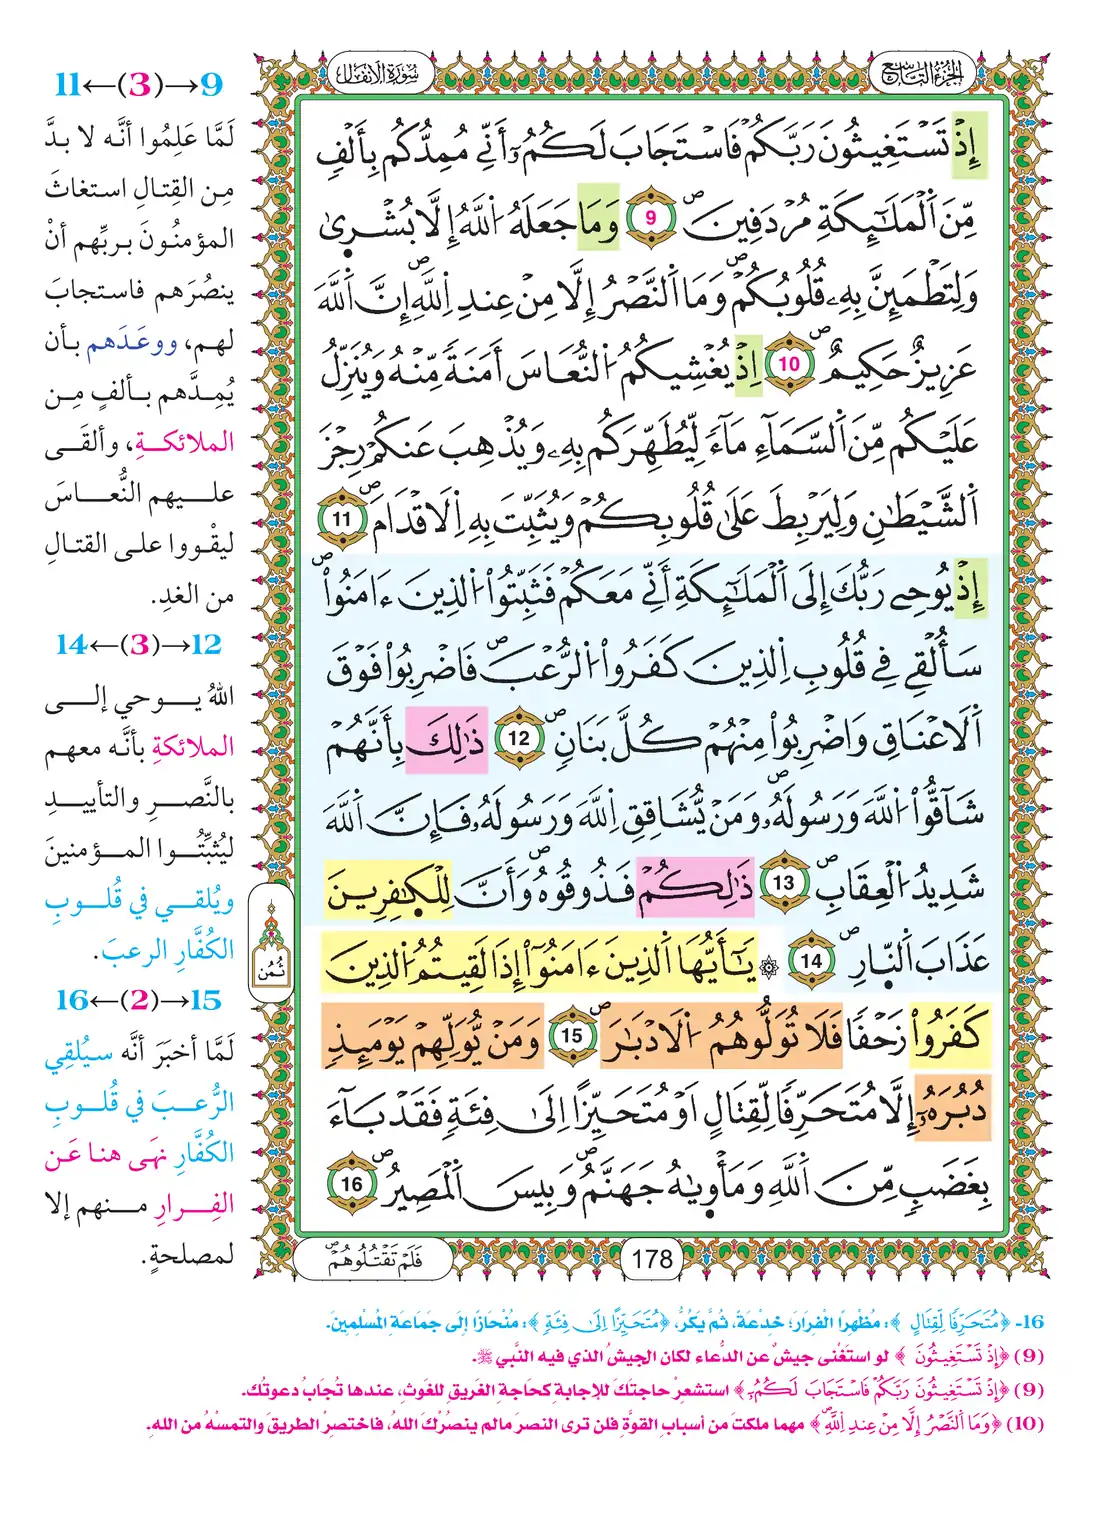 الجزء التاسع
سورة الأنفال
إِذْ تَسْتَغِيثُونَ رَبَّكُمْ فَاسْتَجَابَ لَكُمُۥٓ أَنِّے مُمِدُّكُم بِأَلْفٖ
مِّنَ اَ۬لْمَلَٰٓئِكَةِ مُرْدَفِينَۖ 9 وَمَا جَعَلَهُ اُ۬للَّهُ إِلَّا بُشْر۪يٰ
وَلِتَطْمَئِنَّ بِهِۦ قُلُوبُكُمْۖ وَمَا اَ۬لنَّصْرُ إِلَّا مِنْ عِندِ اِ۬للَّهِۖ إِنَّ اَ۬للَّهَ
عَزِيزٌ حَكِيمٌۖ 10 اِذْ يُغْشِيكُمُ اُ۬لنُّعَاسَ أَمَنَةٗ مِّنْهُ وَيُنَزِّلُ
عَلَيْكُم مِّنَ اَ۬لسَّمَآءِ مَآءٗ لِّيُطَهِّرَكُم بِهِۦ وَيُذْهِبَ عَنكُمْ رِجْزَ
اَ۬لشَّيْطَٰنِ وَلِيَرْبِطَ عَلَىٰ قُلُوبِكُمْ وَيُثَبِّتَ بِهِ اِ۬لَاقْدَامَۖ 11
إِذْ يُوحِے رَبُّكَ إِلَى اَ۬لْمَلَٰٓئِكَةِ أَنِّے مَعَكُمْ فَثَبِّتُواْ اُ۬لذِينَ ءَامَنُواْۖ
سَأُلْقِے فِے قُلُوبِ اِ۬لذِينَ كَفَرُواْ اُ۬لرُّعْبَۖ فَاضْرِبُواْ فَوْقَ
اَ۬لَاعْنَاقِ وَاضْرِبُواْ مِنْهُمْ كُلَّ بَنَانٖۖ 12 ذَٰلِكَ بِأَنَّهُمْ
شَآقُّواْ اُ۬للَّهَ وَرَسُولَهُۥۖ وَمَنْ يُّشَاقِقِ اِ۬للَّهَ وَرَسُولَهُۥ فَإِنَّ اَ۬للَّهَ
شَدِيدُ اُ۬لْعِقَابِۖ 13 ذَٰلِكُمْ فَذُوقُوهُۖ وَأَنَّ لِلْكٰ۪فِرِينَ
عَذَابَ اَ۬لنّ۪ارِۖ 14 ۞ يَٰٓأَيُّهَا اَ۬لذِينَ ءَامَنُوٓاْ إِذَا لَقِيتُمُ اُ۬لذِينَ
كَفَرُواْ زَحْفٗا فَلَا تُوَلُّوهُمُ اُ۬لَادْبَٰرَۖ 15 وَمَنْ يُّوَلِّهِمْ يَوْمَئِذٖ
دُبُرَهُۥٓ إِلَّا مُتَحَرِّفٗا لِّقِتَالٍ اَوْ مُتَحَيِّزاً اِلَىٰ فِئَةٖ فَقَدْ بَآءَ
بِغَضَبٖ مِّنَ اَ۬للَّهِ وَمَأْو۪يٰهُ جَهَنَّمُۖ وَبِيسَ اَ۬لْمَصِيرُۖ 16
ثمن
178
فَلَمْ تَقْتُلُوهُمْۖ
9→(3)←11
لَمَّا عَلِمُوا أنَّه لا بدَّ
مِن القِتالِ استغاثَ
المؤمنُونَ بربِّهم أنْ
ينصُرَهم فاستجابَ
لهم، ووعَدَهم بأن
يُمِدَّهم بألفٍ مِن
الملائكةِ، وألقَى
عليهم النُّعاسَ
ليقْووا على القتالِ
من الغدِ.
12→(3)←14
اللهُ يوحي إلى
الملائكةِ بأنَّه معهم
بالنَّصرِ والتأييدِ
ليُثبِّتُوا المؤمنينَ
ويُلقي في قُلوبِ
الكُفَّارِ الرعبَ.
15→(2)←16
لَمَّا أخبَرَ أنَّه سيُلقِي
الرُّعبَ في قُلوبِ
الكُفَّارِ نهَى هنا عَن
الفِرارِ منهم إلا
لمصلحةٍ.
16- ﴿مُتَحَرِّفٗا لِّقِتَالٍ﴾: مُظْهِرًا الْفِرَارَ؛ خِدْعَةً، ثُمَّ يَكُرُّ، ﴿مُتَحَيِّزاً اِلَىٰ فِئَةٖ﴾: مُنْحَازًا إِلَى جَمَاعَةِ الْمُسْلِمِينَ.
(9) ﴿إِذْ تَسْتَغِيثُونَ﴾ لو استَغْنى جيشٌ عن الدُّعاء لكان الجيشُ الذي فيه النَّبي ﷺ.
(9) ﴿إِذْ تَسْتَغِيثُونَ رَبَّكُمْ فَاسْتَجَابَ لَكُمُۥٓ﴾ استشعِرْ حاجتَكَ للإجابةِ كحَاجةِ الغَريقِ للغَوثِ، عندها تُجَابُ دعوتُكَ.
(10) ﴿وَمَا اَ۬لنَّصْرُ إِلَّا مِنْ عِندِ اِ۬للَّهِۖ﴾ مهما ملكتَ من أسبابِ القوَّةِ فلن ترى النصر مالم ينصرْكَ اللهُ، فاختصِرْ الطريقَ والتمسْهُ من اللهِ.